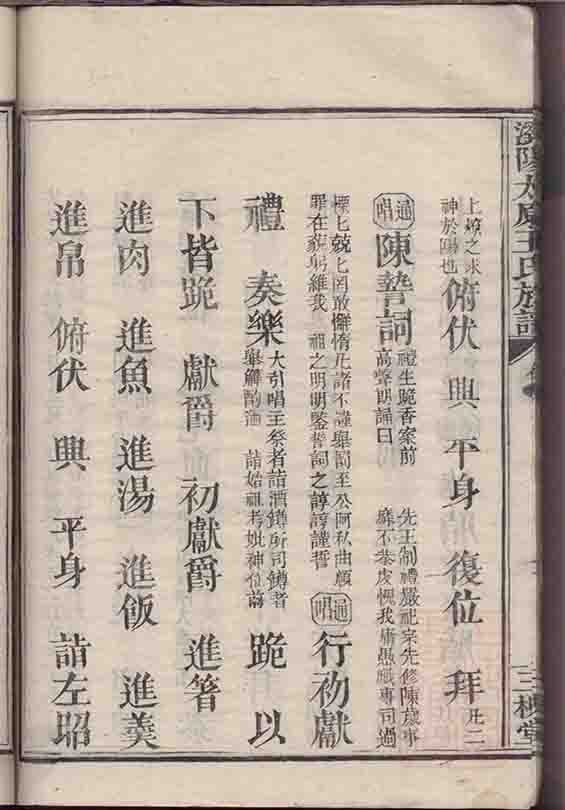 陽太原王氏族譜 三槐堂
上燎之求神於陽也 俯伏 興 平身 復位 拜 凡二
通唱 陳誓詞 禮生跪香案前高聲朗誦曰 先王制禮嚴祀宗先修陳歲事靡不恭虔愧我庸愚職專司過
慄匕兢匕罔敢懈惰凡諸不謹舉罰至公阿私曲顧罪在藐躬維我 祖之明明鑒誓詞之諄諄謹誓 通唱 行初獻
禮 奏樂 大引唱主祭者詣酒罇所司罇者舉觶酌酒 詣始祖考妣神位前 跪 以
下皆跪 獻爵 初獻爵 進箸
進肉 進魚 進湯 進飯 進羹
進帛 俯伏 興 平身 詣左昭